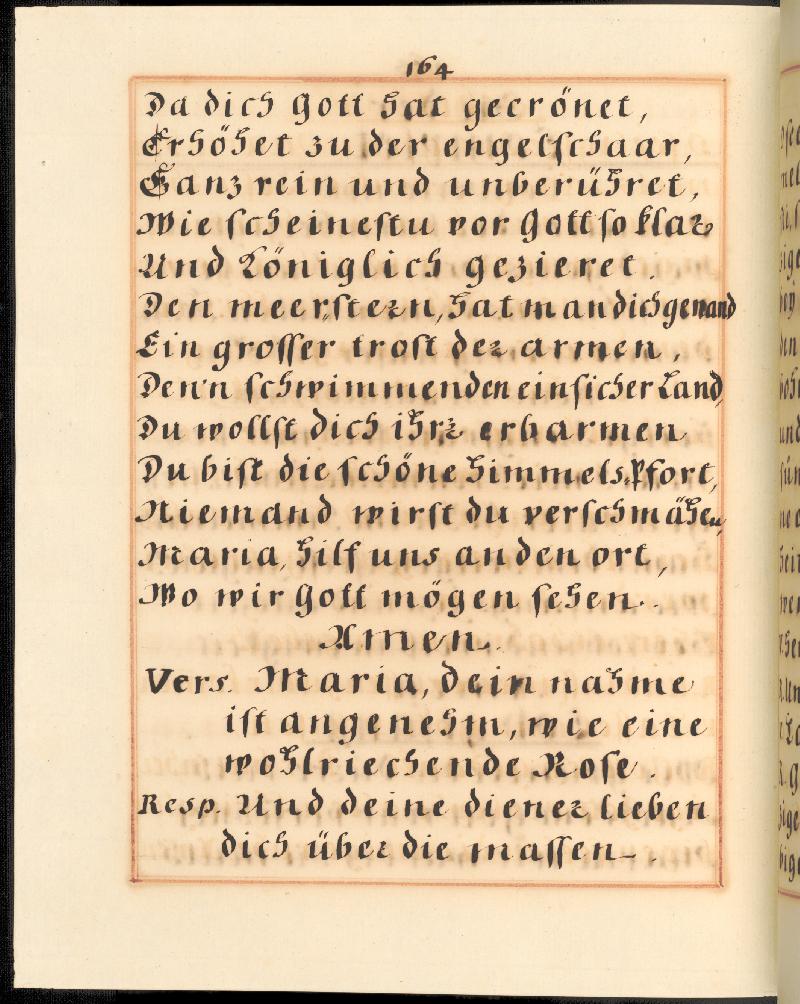 164
Da dich Gott hat gecrönet,
Erhöhet zu der engelſchaar,
Ganz rein und unberühret,
Wie ſcheineſtu vor Gott ſo klar
Und Königlich gezieret.
Den meerſtern, hat man dich genand
Ein groſſer troſt der armen,
Denn ſchwimmenden ein ſicher Land,
Du wollſt dich ihr erbarmen
Du biſt die ſchöne himmels Pfort,
Niemand wirſt du verſchmähen,
Maria, hilf uns an den ort,
Wo wir Gott mögen ſehen.
Amen.
Vers. Maria, dein nahme
iſt angenehm, wie eine
wohlriechende Roſe.
Resp. Und deine diener lieben
dich über die maſſen.